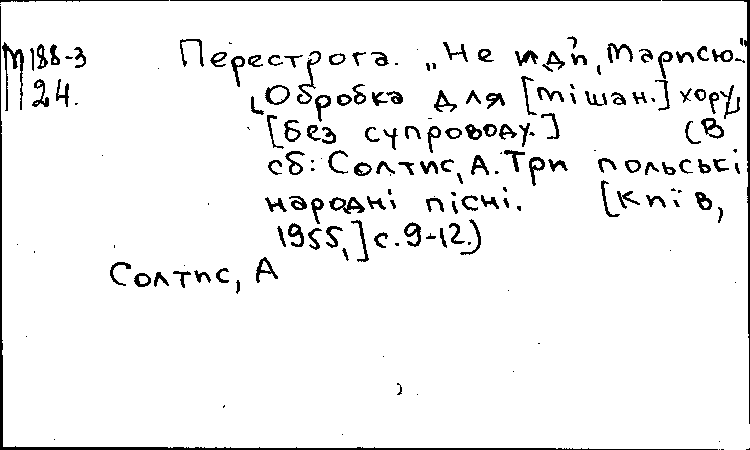 М188-3 Перестрога. „Не йди, Марисю."
24. Обробка для [мішан.] хору,
[без супроводу.] (В
сб: Солтис, А. Три польські
народні пісні. [Київ,
1955,] с. 9-12.)
Солтис, А